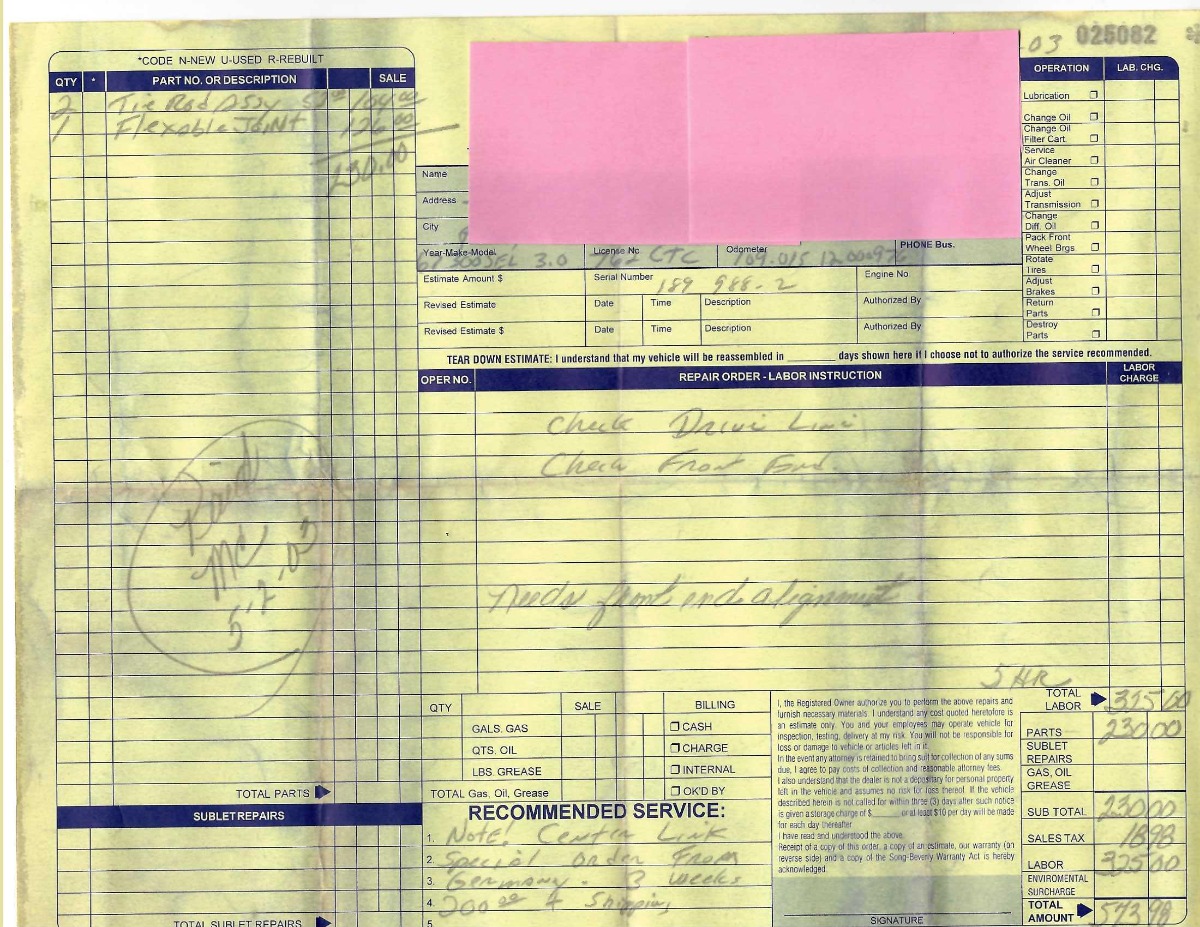 -03 025082
*CODE N-NEW U-USED R-REBUILT
QTY * PART NO. OR DESCRIPTION SALE
2 Tie Rod Assy 52.00 104.00
1 Flexable Joint 126.00
230.00
Paid
MC
5.7.03
TOTAL PARTS
SUBLET REPAIRS
TOTAL SUBLET REPAIRS
Name
Address
City
PHONE Bus.
Year-Make-Model License No Odometer
300SEL 3.0 CTC 109.015
Estimate Amount $ Serial Number Engine No
189 988-2
Revised Estimate Date Time Description Authorized By
Revised Estimate $ Date Time Description Authorized By
OPERATION LAB. CHG.
Lubrication
Change Oil
Change Oil
Filter Cart.
Service
Air Cleaner
Change
Trans. Oil
Adjust
Transmission
Change
Diff. Oil
Pack Front
Wheel Brgs.
Rotate
Tires
Adjust
Brakes
Return
Parts
Destroy
Parts
TEAR DOWN ESTIMATE: I understand that my vehicle will be reassembled in ________ days shown here if I choose not to authorize the service recommended.
OPER NO. REPAIR ORDER - LABOR INSTRUCTION LABOR CHARGE
Check Drive Line
Check Front End.
Needs front end alignment
5 HR
QTY SALE BILLING
GALS. GAS CASH
QTS. OIL CHARGE
LBS. GREASE INTERNAL
TOTAL Gas, Oil, Grease OK'D BY
RECOMMENDED SERVICE:
1. Note! Center Link
2. Special Order From
3. Germany - 3 weeks
4. 200.00 + Shipping
5.
I, the Registered Owner authorize you to perform the above repairs and
furnish necessary materials. I understand any cost quoted heretofore is
an estimate only. You and your employees may operate vehicle for
inspection, testing, delivery at my risk. You will not be responsible for
loss or damage to vehicle or articles left in it.
In the event any attorney is retained to bring suit for collection of any sums
due, I agree to pay costs of collection and reasonable attorney fees.
I also understand that the dealer is not a depositary for personal property
left in the vehicle and assumes no risk for loss thereof. If the vehicle
described herein is not called for within three (3) days after such notice
is given a storage charge of $______ or at least $10 per day will be made
for each day thereafter
I have read and understood the above.
Receipt of a copy of this order, a copy of an estimate, our warranty (on
reverse side) and a copy of the Song-Beverly Warranty Act is hereby
acknowledged.
SIGNATURE
TOTAL LABOR 325 00
PARTS 230 00
SUBLET REPAIRS
GAS, OIL GREASE
SUB TOTAL 230 00
SALES TAX 18 98
LABOR 325 00
ENVIROMENTAL SURCHARGE
TOTAL AMOUNT 573 98